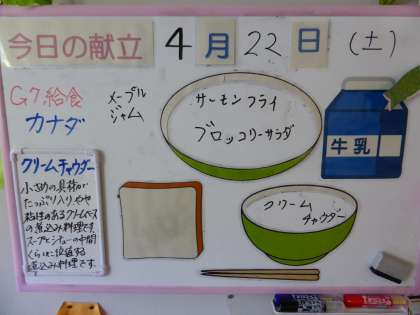 今日の献立 4月22日 (土)
G7給食
カナダ
メープル
ジャム
サーモンフライ
ブロッコリーサラダ
牛乳
クリームチャウダー
小さめの具材が
たっぷり入りやや
粘性のあるクリームベース
の煮込み料理です。
スープとシチューの中間
くらいに位置する
煮込み料理です。
クリーム
チャウダー